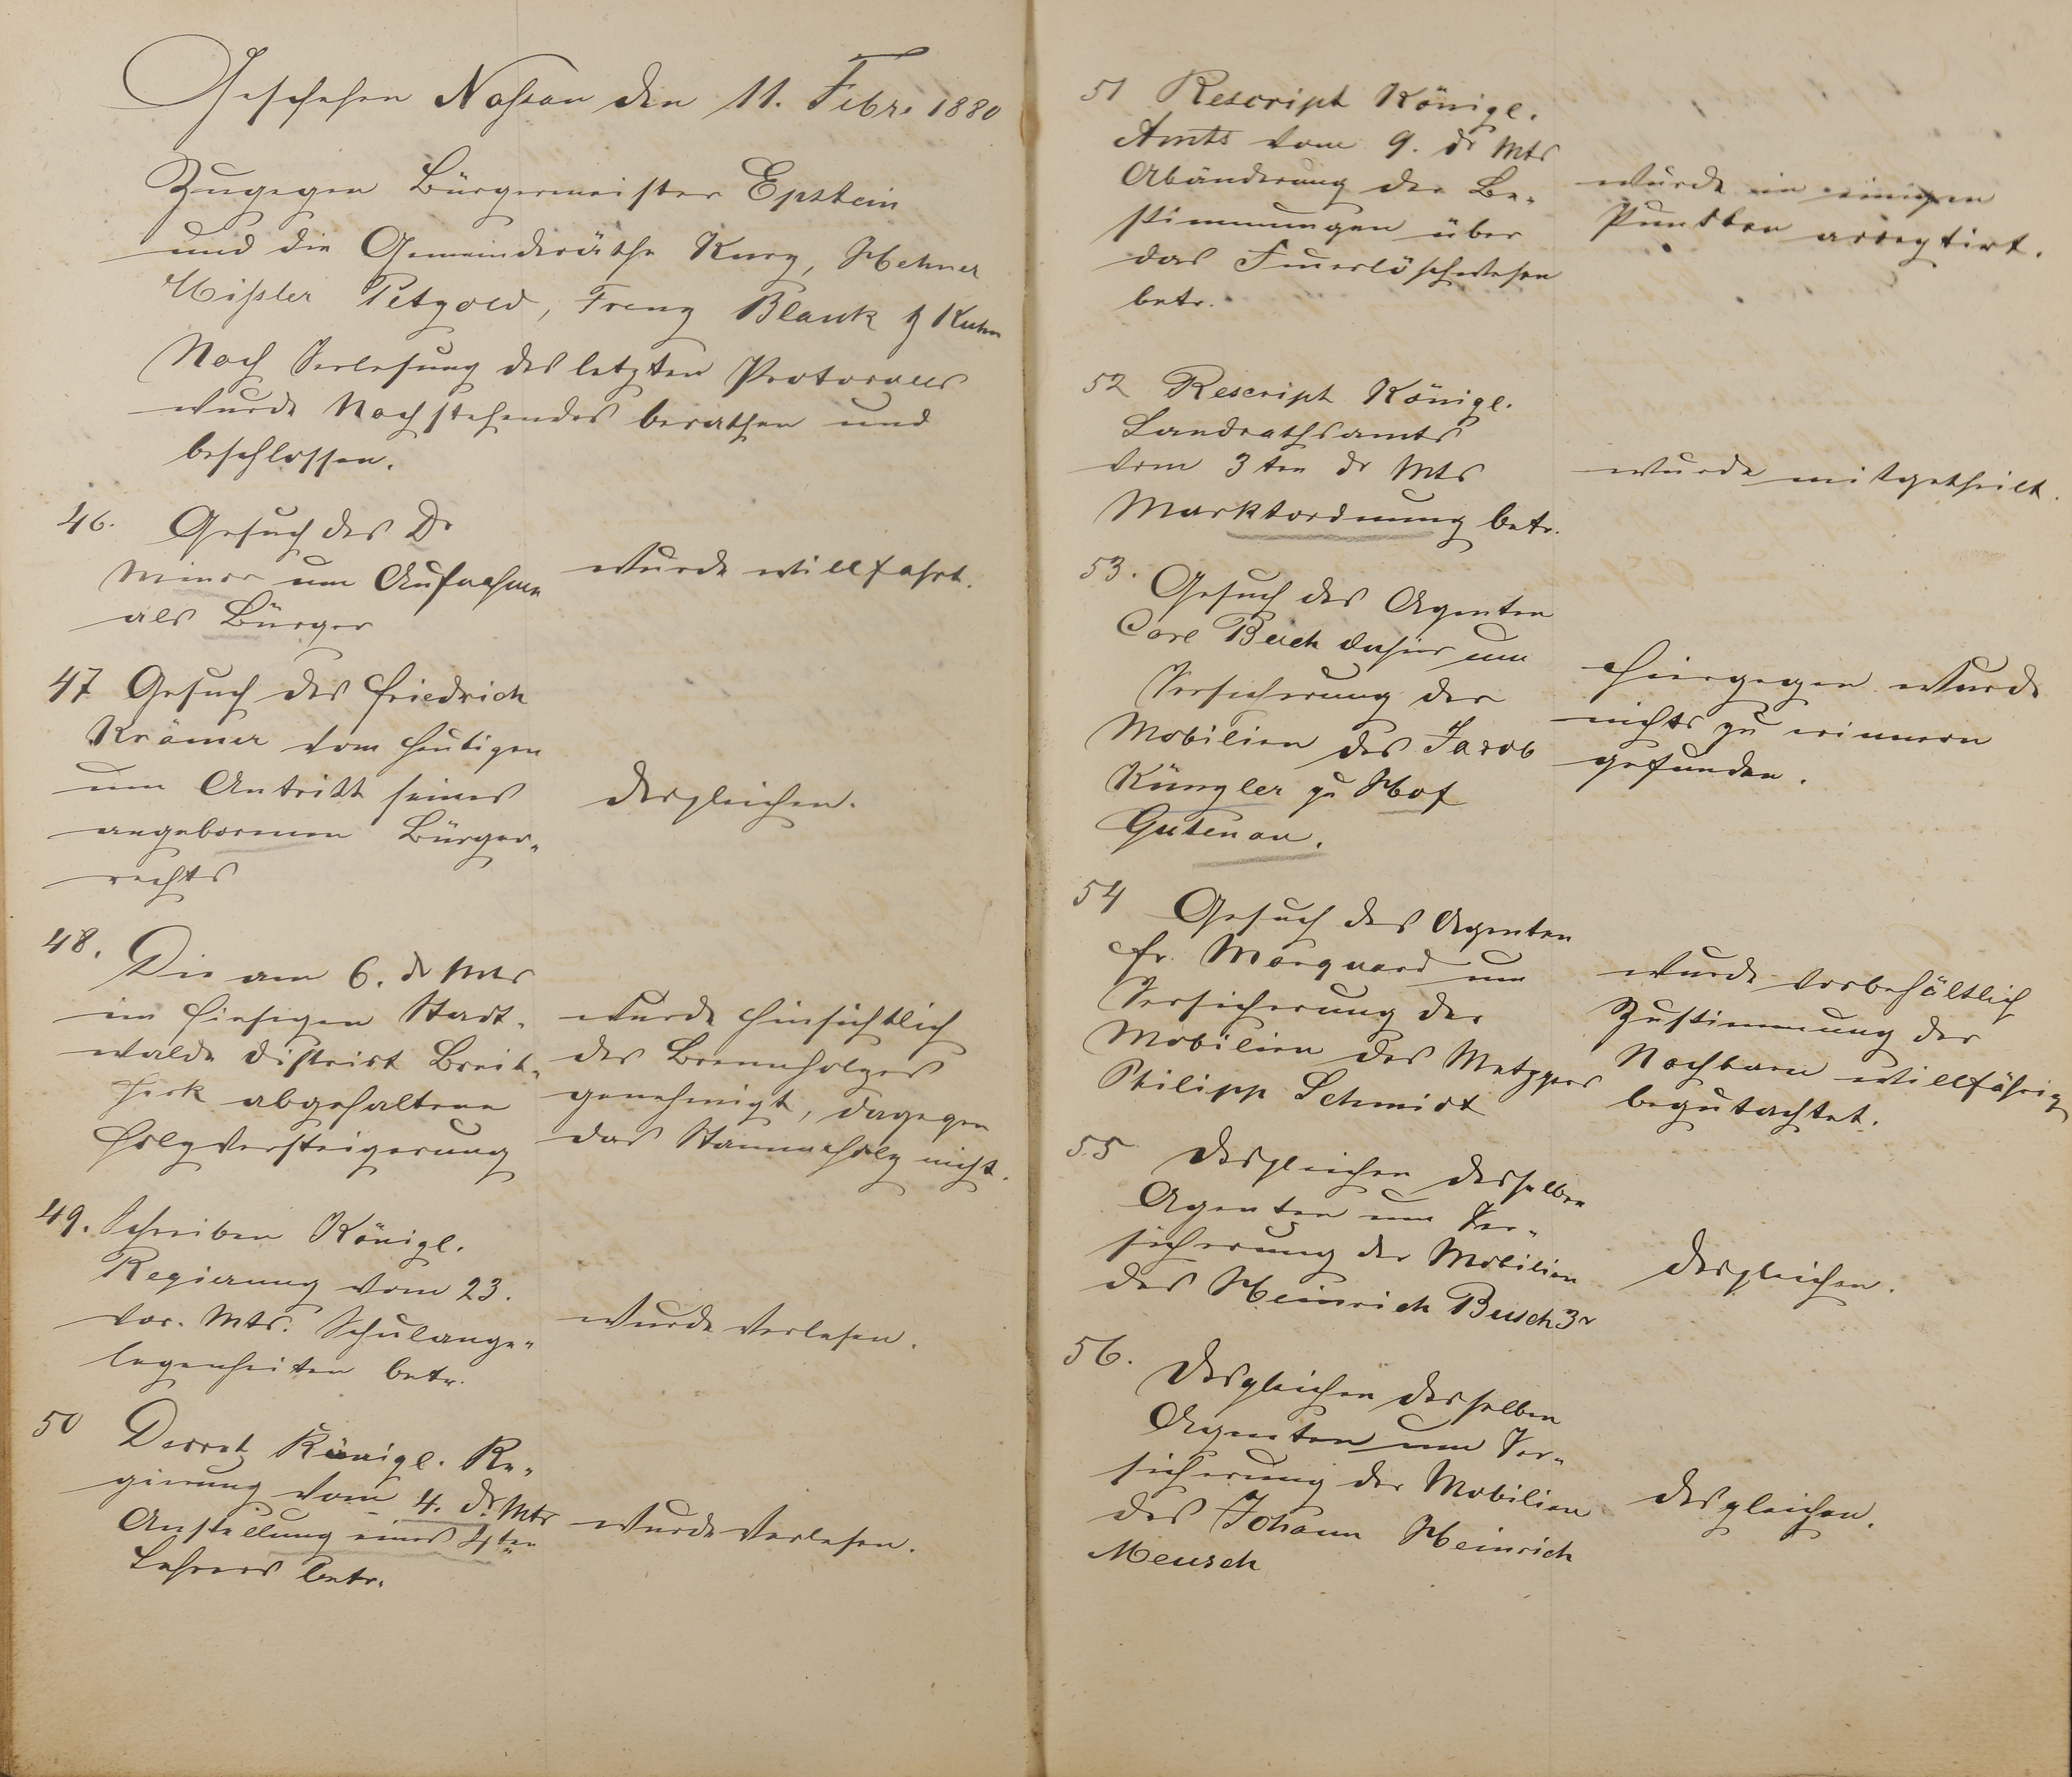 Geschehen Nassau den 11. Febr. 1880
Zugegen Bürgermeister Epstein
und die Gemeinderäthe Kurz, Hehner
Mißler Petzold, Frenz Blank & Kuhn
Nach Verlesung des letzten Protocolls
wurde Nachstehendes berathen und
beschlossen.
46. Gesuch des Dr
Minor um Aufnahme
als Bürger
wurde willfahrt.
47 Gesuch des Friedrich
Krämer vom heutigen
um Antritt seines
angebornenen Bürger„
rechts
desgleichen.
48. Die am 6. ds Mts
im hiesigen Stadt„
walde District Breit„
heck abgehaltene
Holzversteigerung
wurde hinsichtlich
des Brennholzes
genehmigt, dagegen
das Stammholz nicht.
49. Schreiben Königl.
Regierung vom 23.
vor. Mts. Schulange„
legenheiten betr.
wurde verlesen.
50 Decret Königl. Re„
gierung vom 4. ds. Mts
Anstellung eines 4ten
Lehrers betr.
wurde verlesen.
51 Rescript Königl.
Amts vom 9. ds Mts
Abänderung der Be„
stimmungen über
das Feuerlöschwesen
betr.
wurde in einigen
Punkten acceptirt.
52 Rescript Königl.
Landrathsamts
vom 3ten ds Mts
Marktordnung betr.
wurde mitgetheilt.
53. Gesuch des Agenten
Carl Buch dahier um
Versicherung der
Mobilien des Jacob
Küngler zu Hof
Gutenau.
Hiergegen wurde
nichts zu erinnern
gefunden.
54 Gesuch des Agenten
Fr. Marquard um
Versicherung der
Mobilien des Metzgers
Philipp Schmidt
wurde vorbehältlich
Zustimmung der
Nachbarn willfährig
begutachtet.
55 Desgleichen desselben
Agenten um Ver„
sicherung der Mobilien
des Heinrich Busch 3r
desgleichen.
56. Desgleichen desselben
Agenten um Ver„
sicherung der Mobilien
des Johann Heinrich
Meusch
desgleichen.